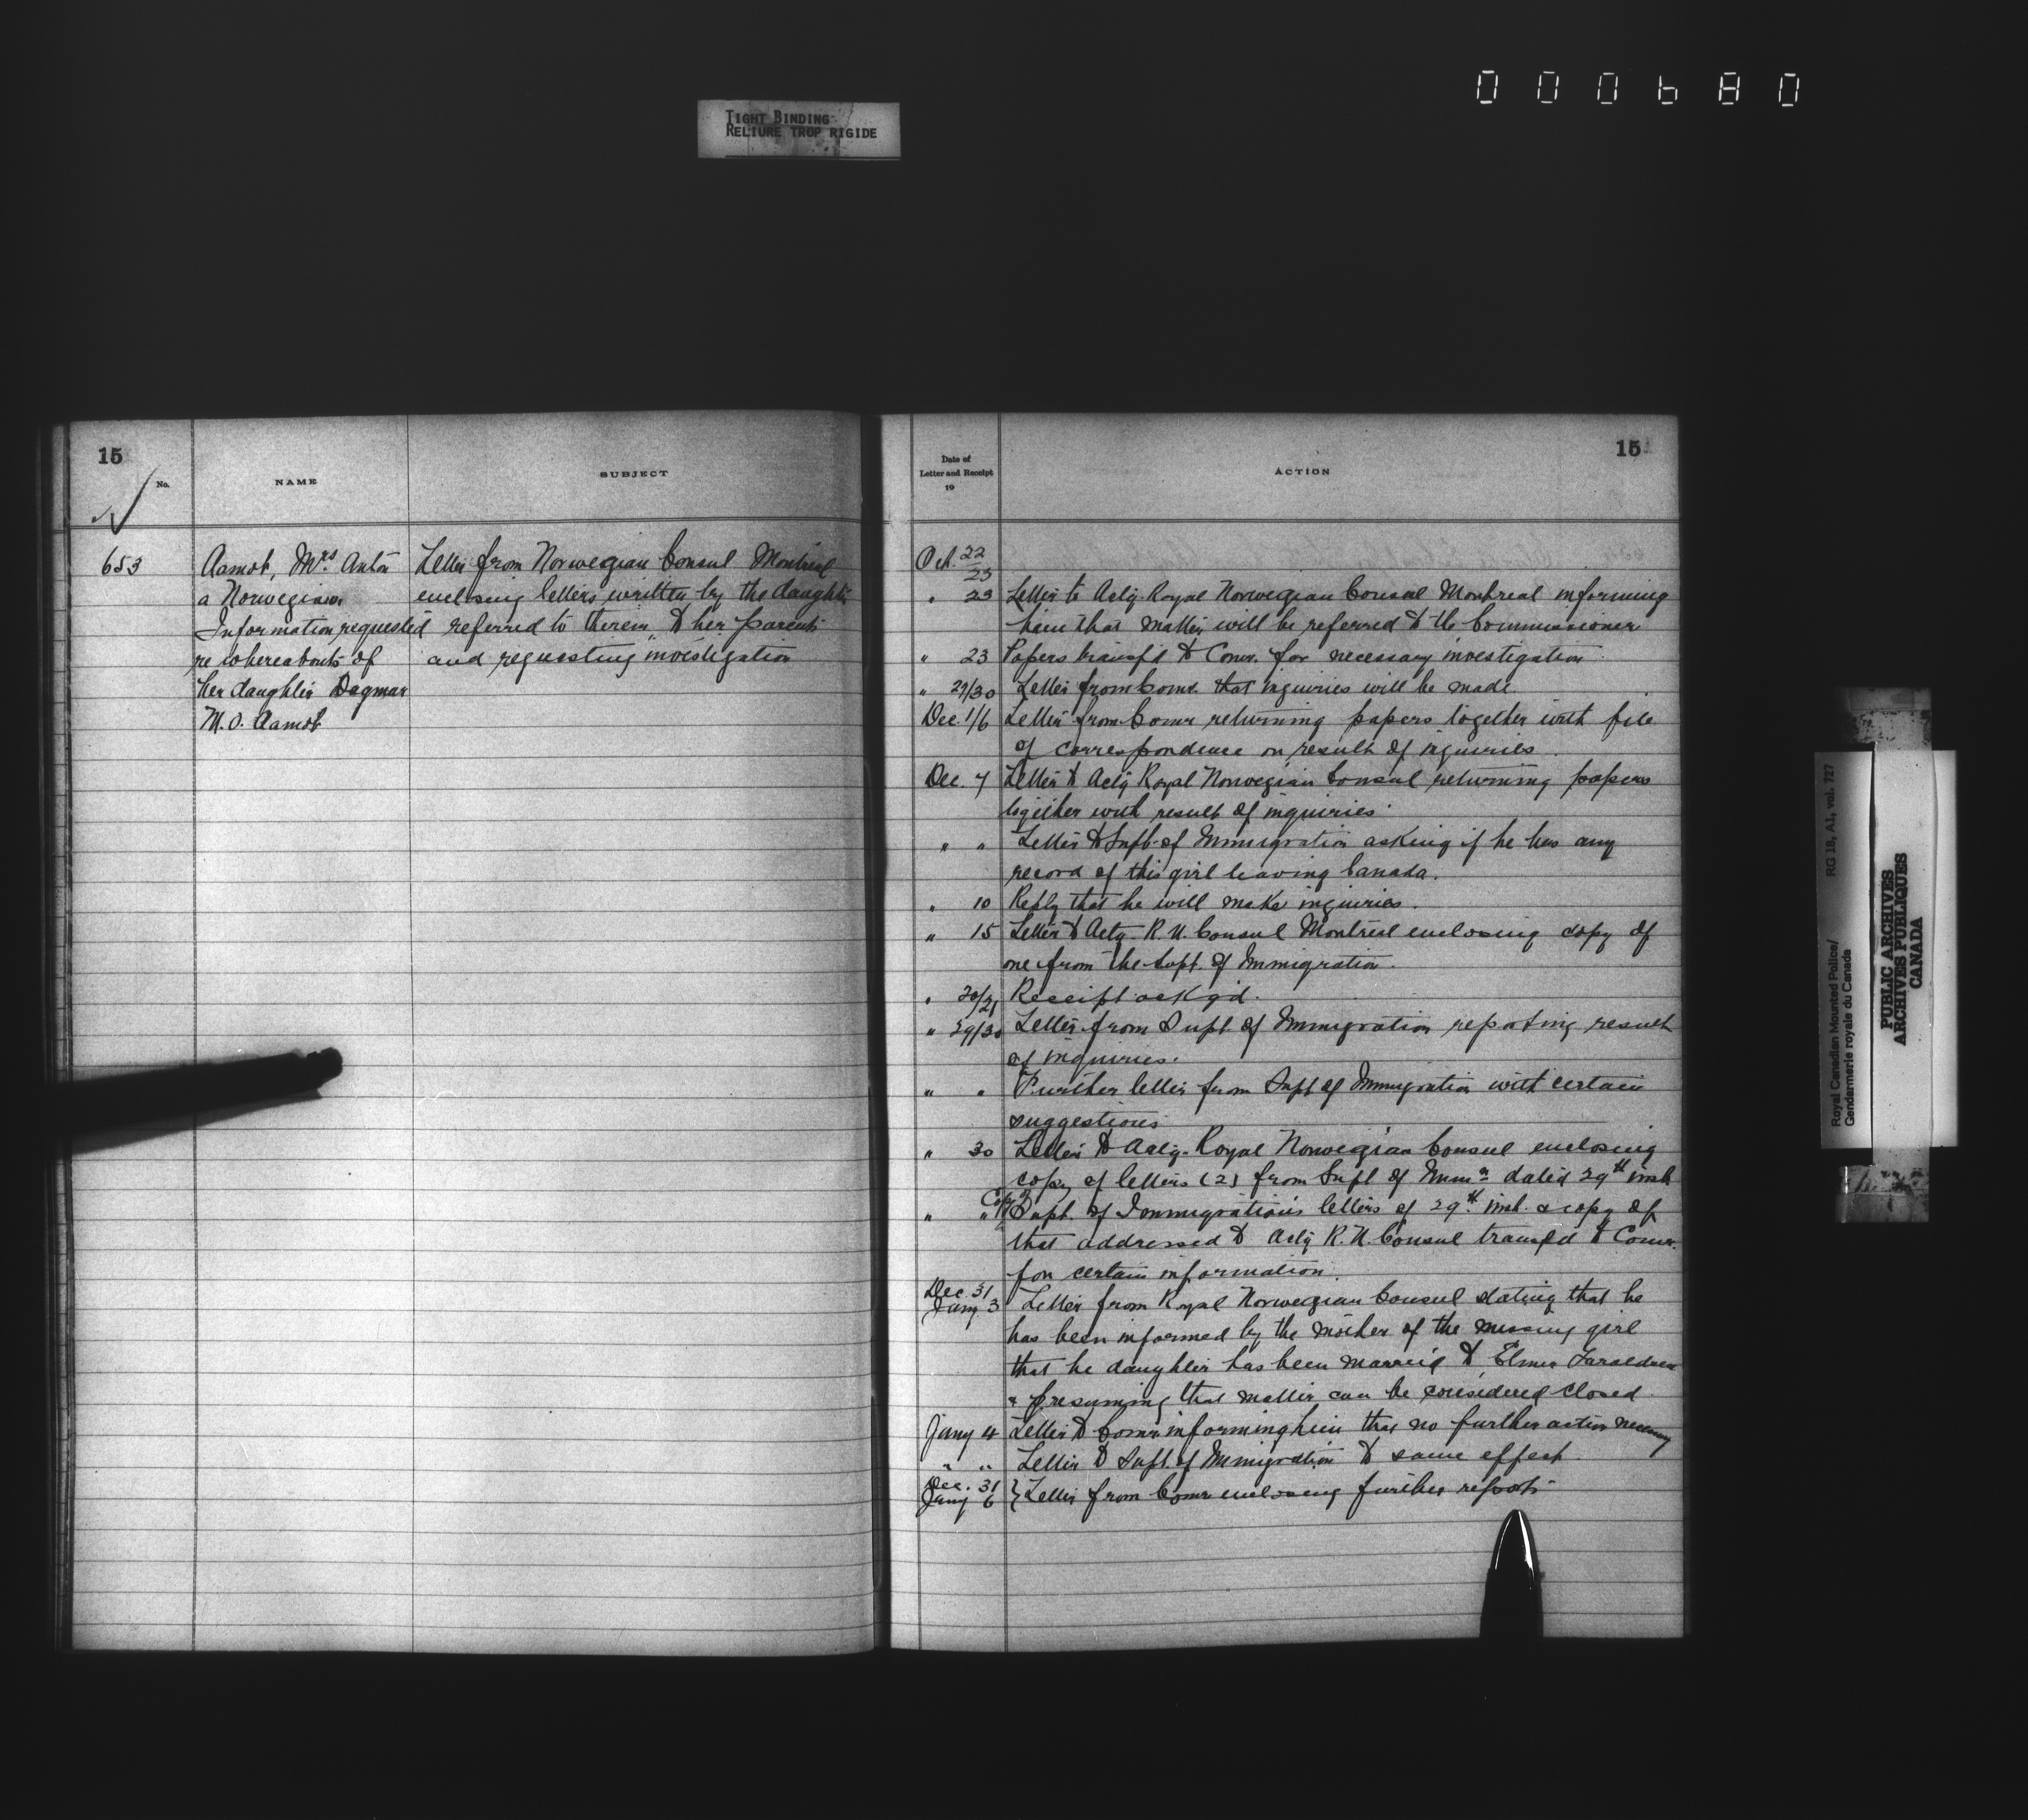 000680
TIGHT BINDING
RELIURE TROP RIGIDE
15
No.
NAME
SUBJECT
653
Aamot, Mrs Anton
a Norwegian
Information requested
re whereabouts of
her daughter Dagmar
M.O. Aamot
Letter from Norwegian Consul Montreal
enclosing letters written by the daughter
referred to therein to her parents
and requesting investigation
Date of
Letter and Receipt
19
ACTION
15
Oct. 22
23
" 23 Letter to Actg Royal Norwegian Consul Montreal informing
him that matter will be referred to the Commissioner
" 23 Papers transf'd to Comr. for necessary investigation
" 29/30 Letter from Comr. that inquiries will be made.
Dec. 1/6 Letter from Comr returning papers together with file
of correspondence on result of inquiries.
Dec. 7 Letter to Actg Royal Norwegian Consul returning papers
together with result of inquiries.
" " Letter to Supt. of Immigration asking if he has any
record of this girl leaving Canada.
" 10 Reply that he will make inquiries.
" 15 Letter to Actg. R.N. Consul Montreal enclosing copy of
one from the Supt. of Immigration.
" 20/21 Receipt ackg'd.
" 29/30 Letter from Supt of Immigration reporting result
of inquiries.
" " Further letter from Supt of Immigration with certain
suggestions
" 30 Letter to Actg. Royal Norwegian Consul enclosing
copy of letters (2) from Supt of Immn dated 29th inst
" " Copy of Supt. of Immigration's letters of 29th inst. & copy of
that addressed to Actg R.N. Consul transfd to Comr.
for certain information.
Dec. 31
Jany. 3 Letter from Royal Norwegian Consul stating that he
has been informed by the mother of the missing girl
that he daughter has been married to Elmer
& presuming that matter can be considered closed
Jany 4 Letter to Comr informing him that no further action necessary
" " Letter to Supt. of Immigration to same effect.
Dec. 31
Jany 6 } Letter from Comr enclosing further reports
Royal Canadian Mounted Police/
Gendarmerie royale du Canada
RG 18, A1, vol. 727
PUBLIC ARCHIVES
ARCHIVES PUBLIQUES
CANADA